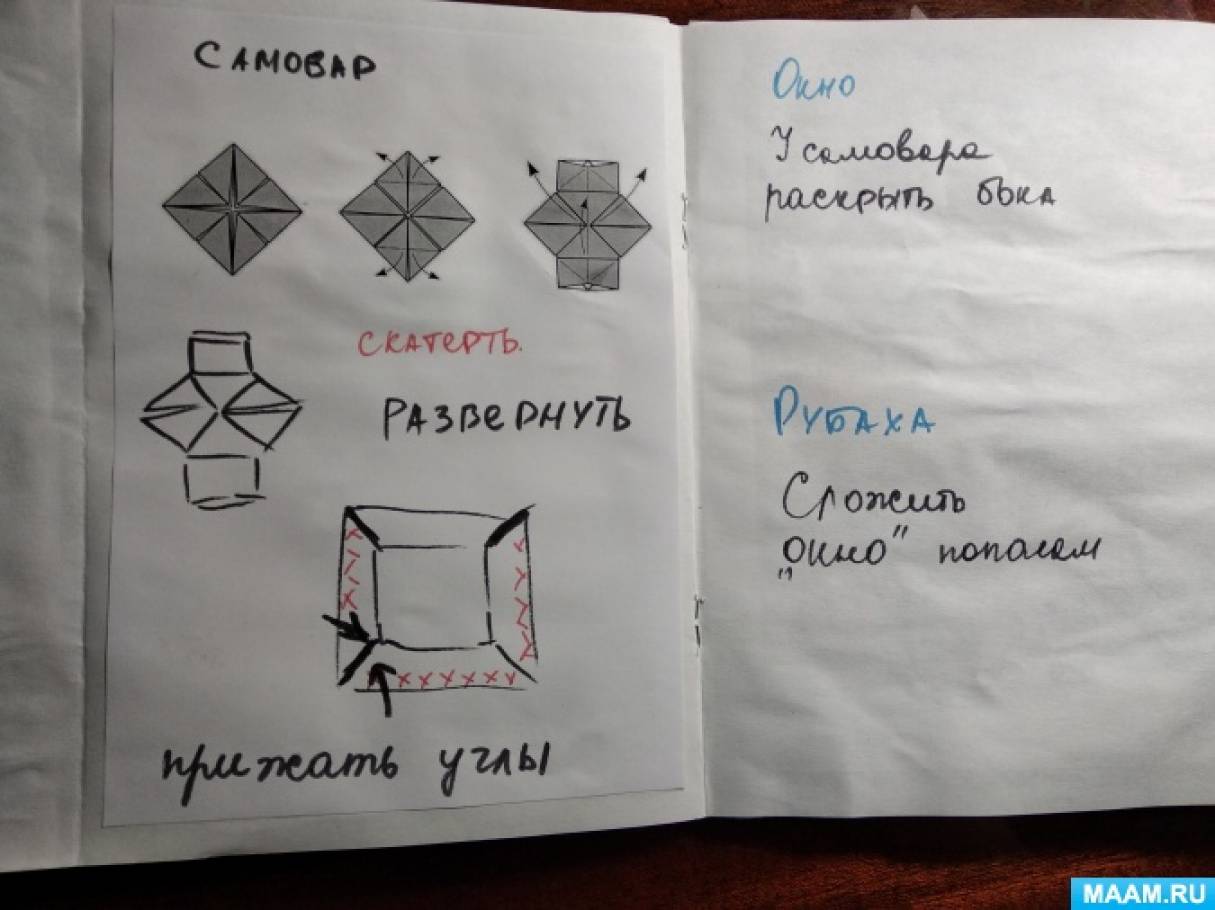 САМОВАР
СКАТЕРТЬ.
РАЗВЕРНУТЬ
прижать углы
Окно
У самовара
раскрыть бока
РУБАХА
Сложить
„окно" пополам
MAAM.RU